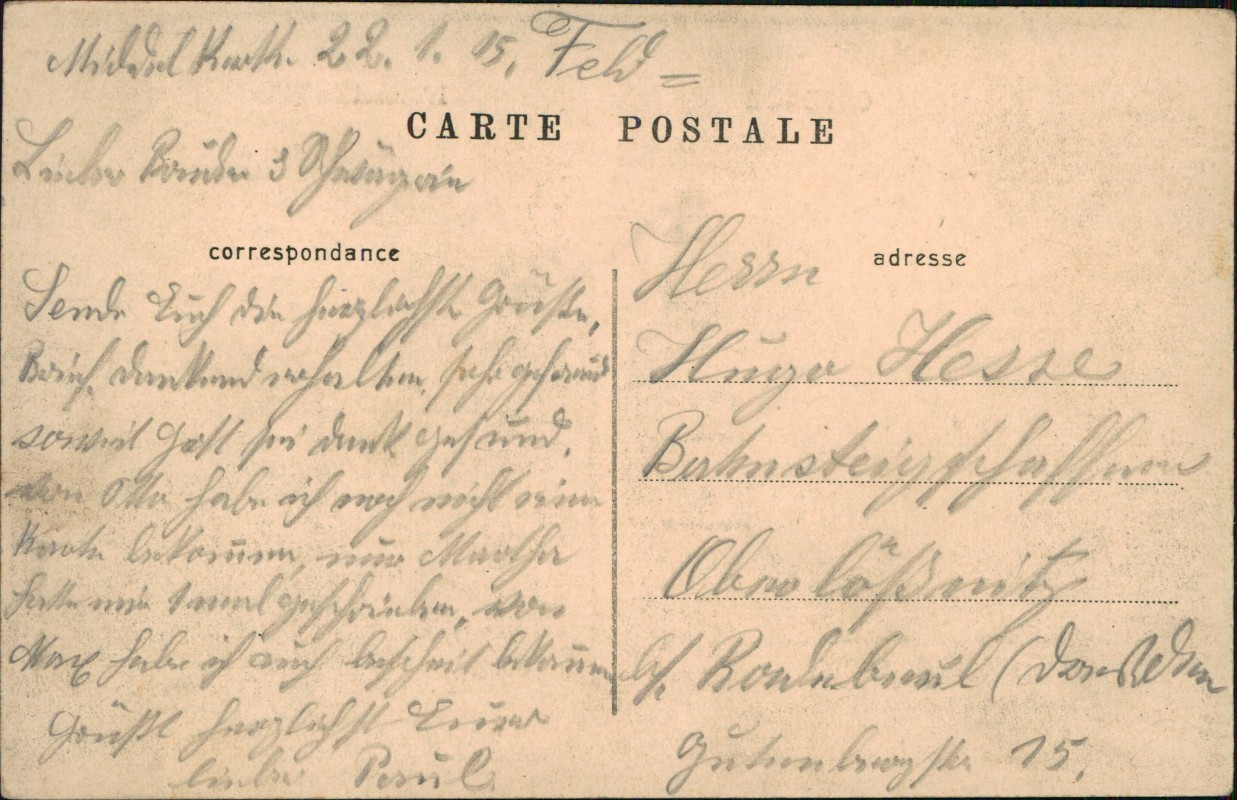 Middelkerk. 22. 1. 15. Feld =
CARTE POSTALE
Lieber Bruder & Schwägerin
correspondance
Sende Euch die herzlichste Grüße,
Brief dankend erhalten, sehr gefreud
soweit Gott sei dank gesund.
von Otto habe ich noch nicht eine
Karte bekommen, nur Martha
hatte mir 1 mal geschrieben, von
Max habe ich auch bescheit bekommen
Grüßt herzlichst Euer
lieber Paul
adresse
Herrn
Hugo Hesse
Bahnsteigschaffner
Oberlößnitz
b/. Radebeul (Dresden
Gutenbergstr 15.